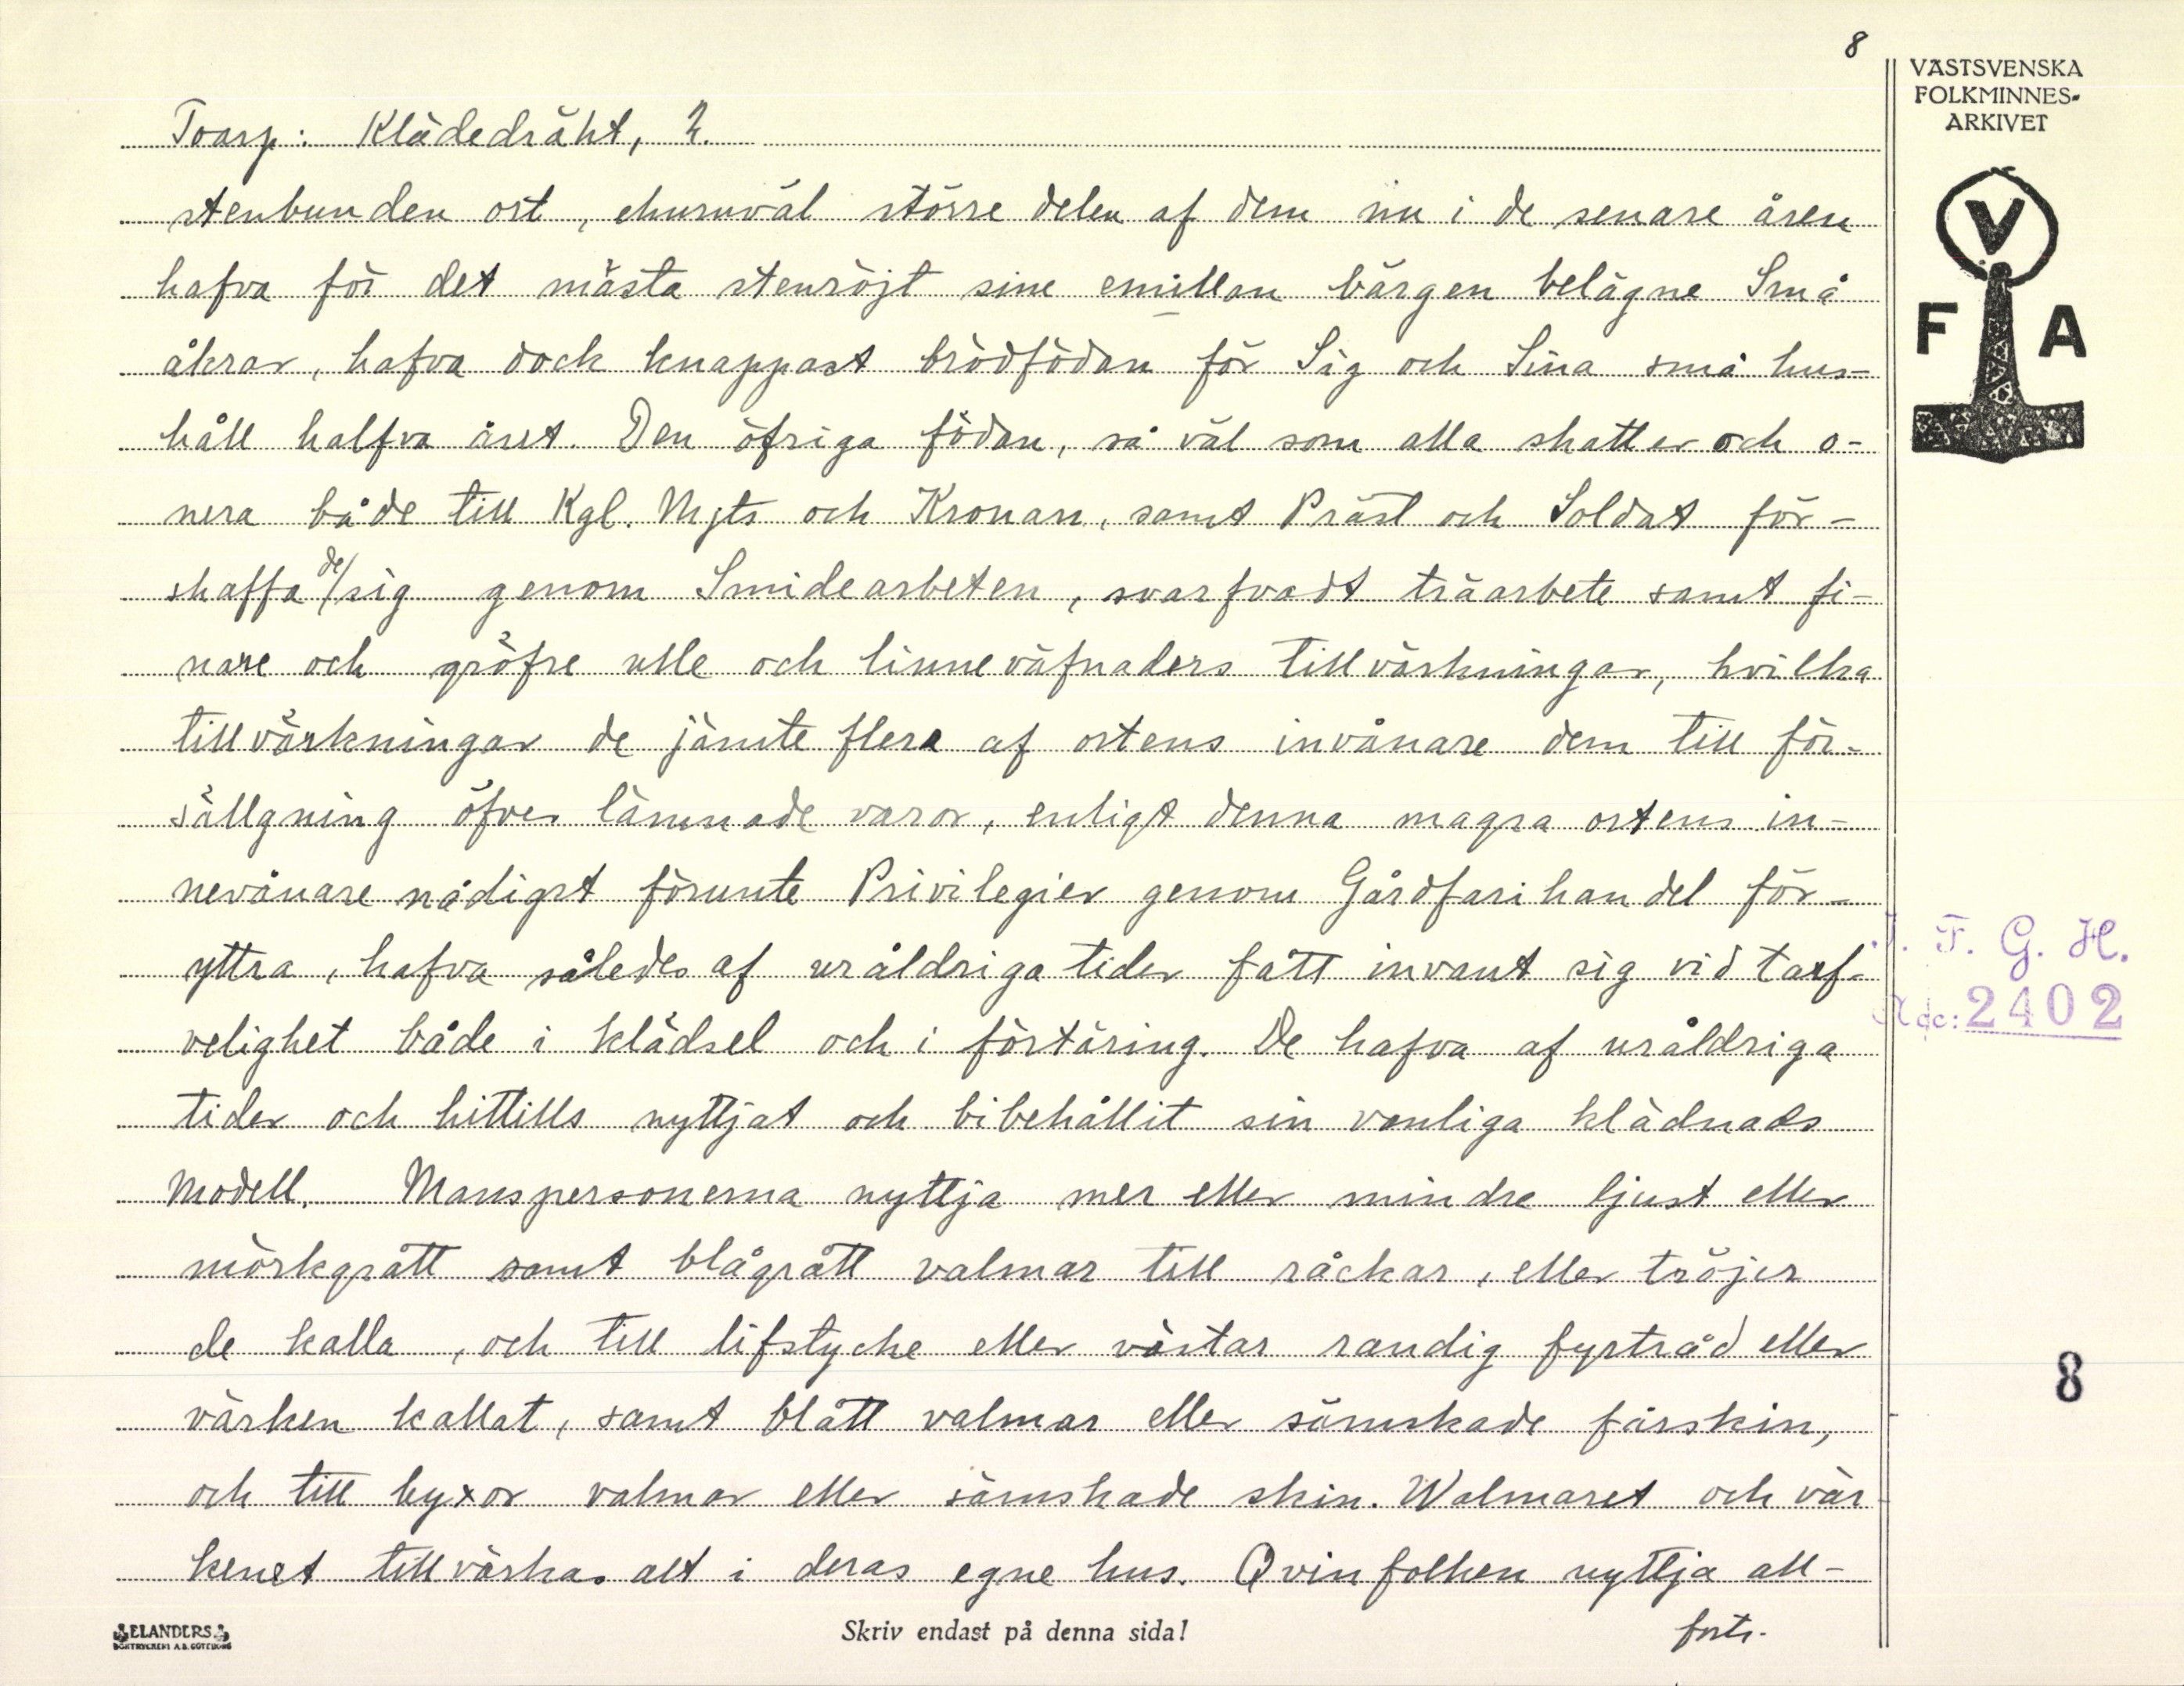 8
VÄSTSVENSKA
FOLKMINNES-
ARKIVET
V
F A
Toarp: Klädedräkt, 2.
stenbunden ort, ehuruväl större delen af dem nu i de senare åren
hafva för det mästa stenröjt sine emillan bärgen belägne Små
åkrar, hafva dock knappast brödfödan för Sig och Sina små hus-
håll halfva året. Den öfriga födan, så väl som alla skatter och o-
nera både till Kgl. Mjts och Kronan, samt Präst och Soldat för-
skaffa de/sig genom Smidearbeten, svarfvadt träarbete samt fi-
nare och gröfre ulle och linneväfnaders tillvärkningar, hvilka
tillvärkningar de jämte flera af ortens invånare dem till för-
sällgning öfver lämnade varor, enligt denna magra ortens in-
nevånare nådigst förunte Privilegier genom Gårdfarihandel för-
yttra, hafva således af uråldriga tider fått invant sig vid tarf-
velighet både i klädsel och i förtäring. De hafva af uråldriga
tider och hittills nyttjat och bibehållit sin vanliga klädnads
Modell. Manspersonerna nyttja mer eller mindre ljust eller
mörkgrått samt blågrått valmar till råckar, eller tröjer
de kalla, och till lifstycke eller västar randig fyrtråd eller
värken kallat, samt blått valmar eller sämskade fårskin,
och till byxor valmar eller sämskade skin. Walmaret och vär
kenet tillvärkas alt i deras egne hus. Qvinfolken nyttja all-
forts.
I. F. G. H.
Acc: 2402
8
ELANDERS
BOKTRYCKERI A.B. GÖTEBORG
Skriv endast på denna sida!